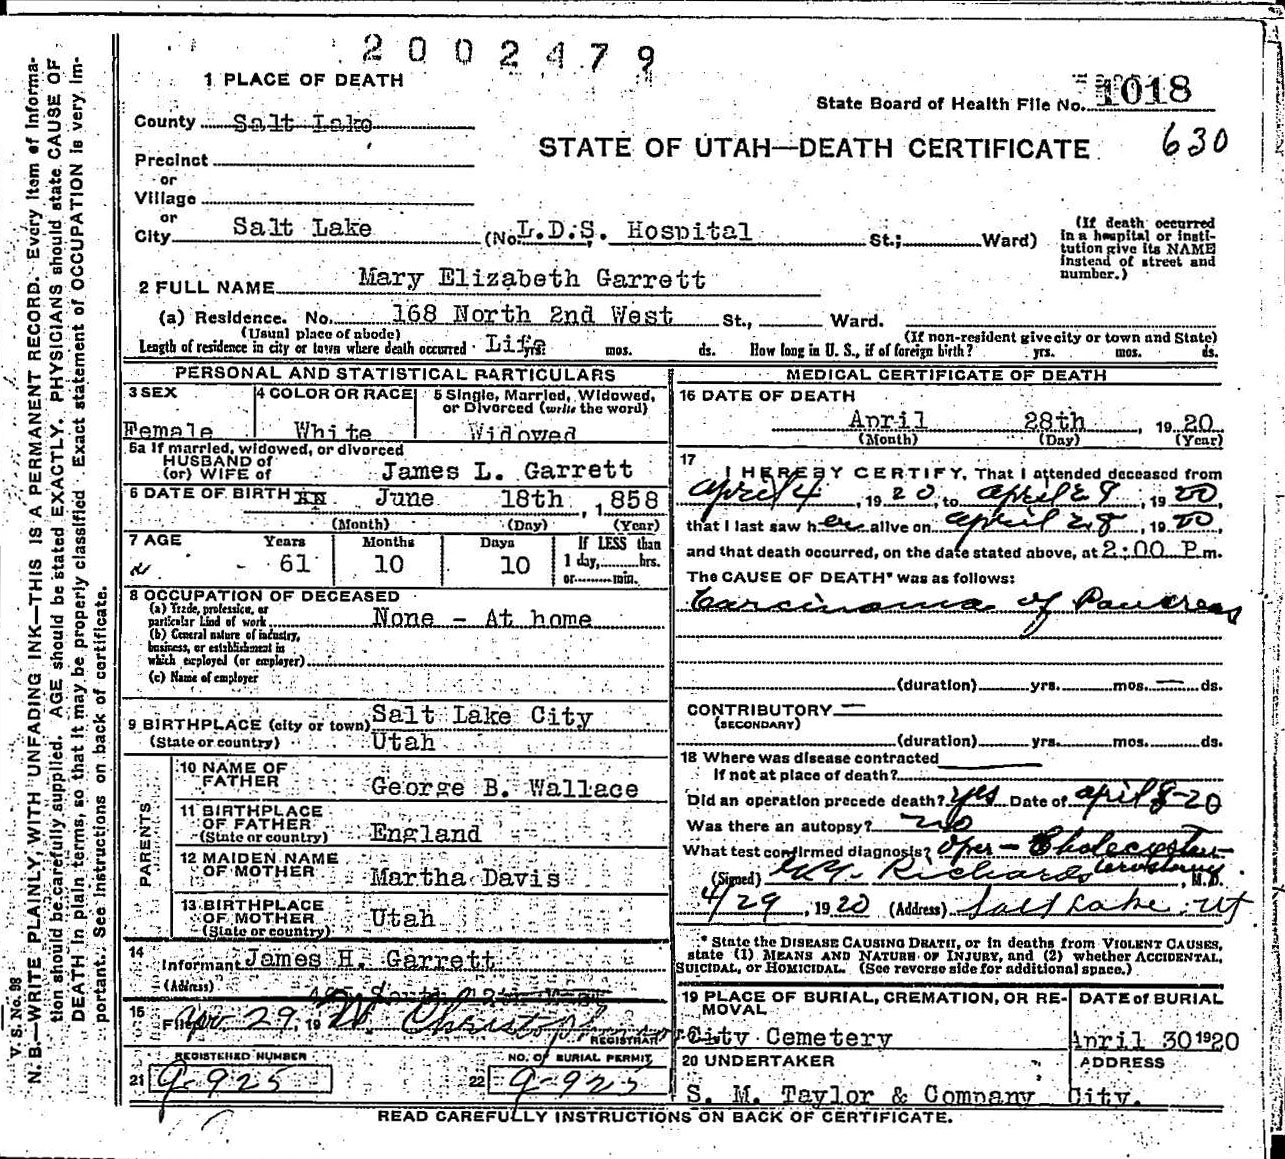 2002479
1 PLACE OF DEATH
State Board of Health File No. 1018
County Salt Lake
STATE OF UTAH—DEATH CERTIFICATE 630
Precinct
or
Village
or
City Salt Lake (No. L.D.S. Hospital St.; Ward)
(If death occurred in a hospital or insti-
tution give its NAME
instead of street and
number.)
2 FULL NAME Mary Elizabeth Garrett
(a) Residence. No. 168 North 2nd West St., Ward.
(Usual place of abode) (If non-resident give city or town and State)
Length of residence in city or town where death occurred Life yrs. mos. ds. How long in U. S., if of foreign birth? yrs. mos. ds.
PERSONAL AND STATISTICAL PARTICULARS
3 SEX 4 COLOR OR RACE 5 Single, Married, Widowed,
or Divorced (write the word)
Female White Widowed
5a If married, widowed, or divorced
HUSBAND of
(or) WIFE of James L. Garrett
6 DATE OF BIRTH June 18th, 1858
(Month) (Day) (Year)
7 AGE Years Months Days If LESS than
61 10 10 1 day, hrs.
or min.
8 OCCUPATION OF DECEASED
(a) Trade, profession, or
particular kind of work None - At home
(b) General nature of industry,
business, or establishment in
which employed (or employer)
(c) Name of employer
9 BIRTHPLACE (city or town) Salt Lake City
(State or country) Utah
PARENTS
10 NAME OF
FATHER George B. Wallace
11 BIRTHPLACE
OF FATHER
(State or country) England
12 MAIDEN NAME
OF MOTHER Martha Davis
13 BIRTHPLACE
OF MOTHER Utah
(State or country)
14 Informant James H. Garrett
(Address)
15 Filed Apr 29, 19
REGISTRAR
REGISTERED NUMBER NO. OF BURIAL PERMIT
21 9-925 22 9-925
MEDICAL CERTIFICATE OF DEATH
16 DATE OF DEATH
April 28th, 1920
(Month) (Day) (Year)
17 I HEREBY CERTIFY, That I attended deceased from
April 4, 1920, to April 29, 1920
that I last saw her alive on April 28, 1920
and that death occurred, on the date stated above, at 2:00 P.m.
The CAUSE OF DEATH* was as follows:
Carcinoma of Pancreas
(duration) yrs. mos. — ds.
CONTRIBUTORY —
(SECONDARY)
(duration) yrs. mos. ds.
18 Where was disease contracted
If not at place of death?
Did an operation precede death? Yes Date of April 8-20
Was there an autopsy? No
What test confirmed diagnosis? Oper -
(Signed) Richards, M.D.
4/29, 1920 (Address) Salt Lake, Ut
* State the DISEASE CAUSING DEATH, or in deaths from VIOLENT CAUSES,
state (1) MEANS AND NATURE OF INJURY, and (2) whether ACCIDENTAL,
SUICIDAL, or HOMICIDAL. (See reverse side for additional space.)
19 PLACE OF BURIAL, CREMATION, OR RE-
MOVAL DATE of BURIAL
City Cemetery April 30 1920
20 UNDERTAKER ADDRESS
S. M. Taylor & Company City.
READ CAREFULLY INSTRUCTIONS ON BACK OF CERTIFICATE.
V. S. No. 98
N. B.—WRITE PLAINLY, WITH UNFADING INK—THIS IS A PERMANENT RECORD. Every item of informa-
tion should be carefully supplied. AGE should be stated EXACTLY. PHYSICIANS should state CAUSE OF
DEATH in plain terms, so that it may be properly classified. Exact statement of OCCUPATION is very im-
portant. See instructions on back of certificate.